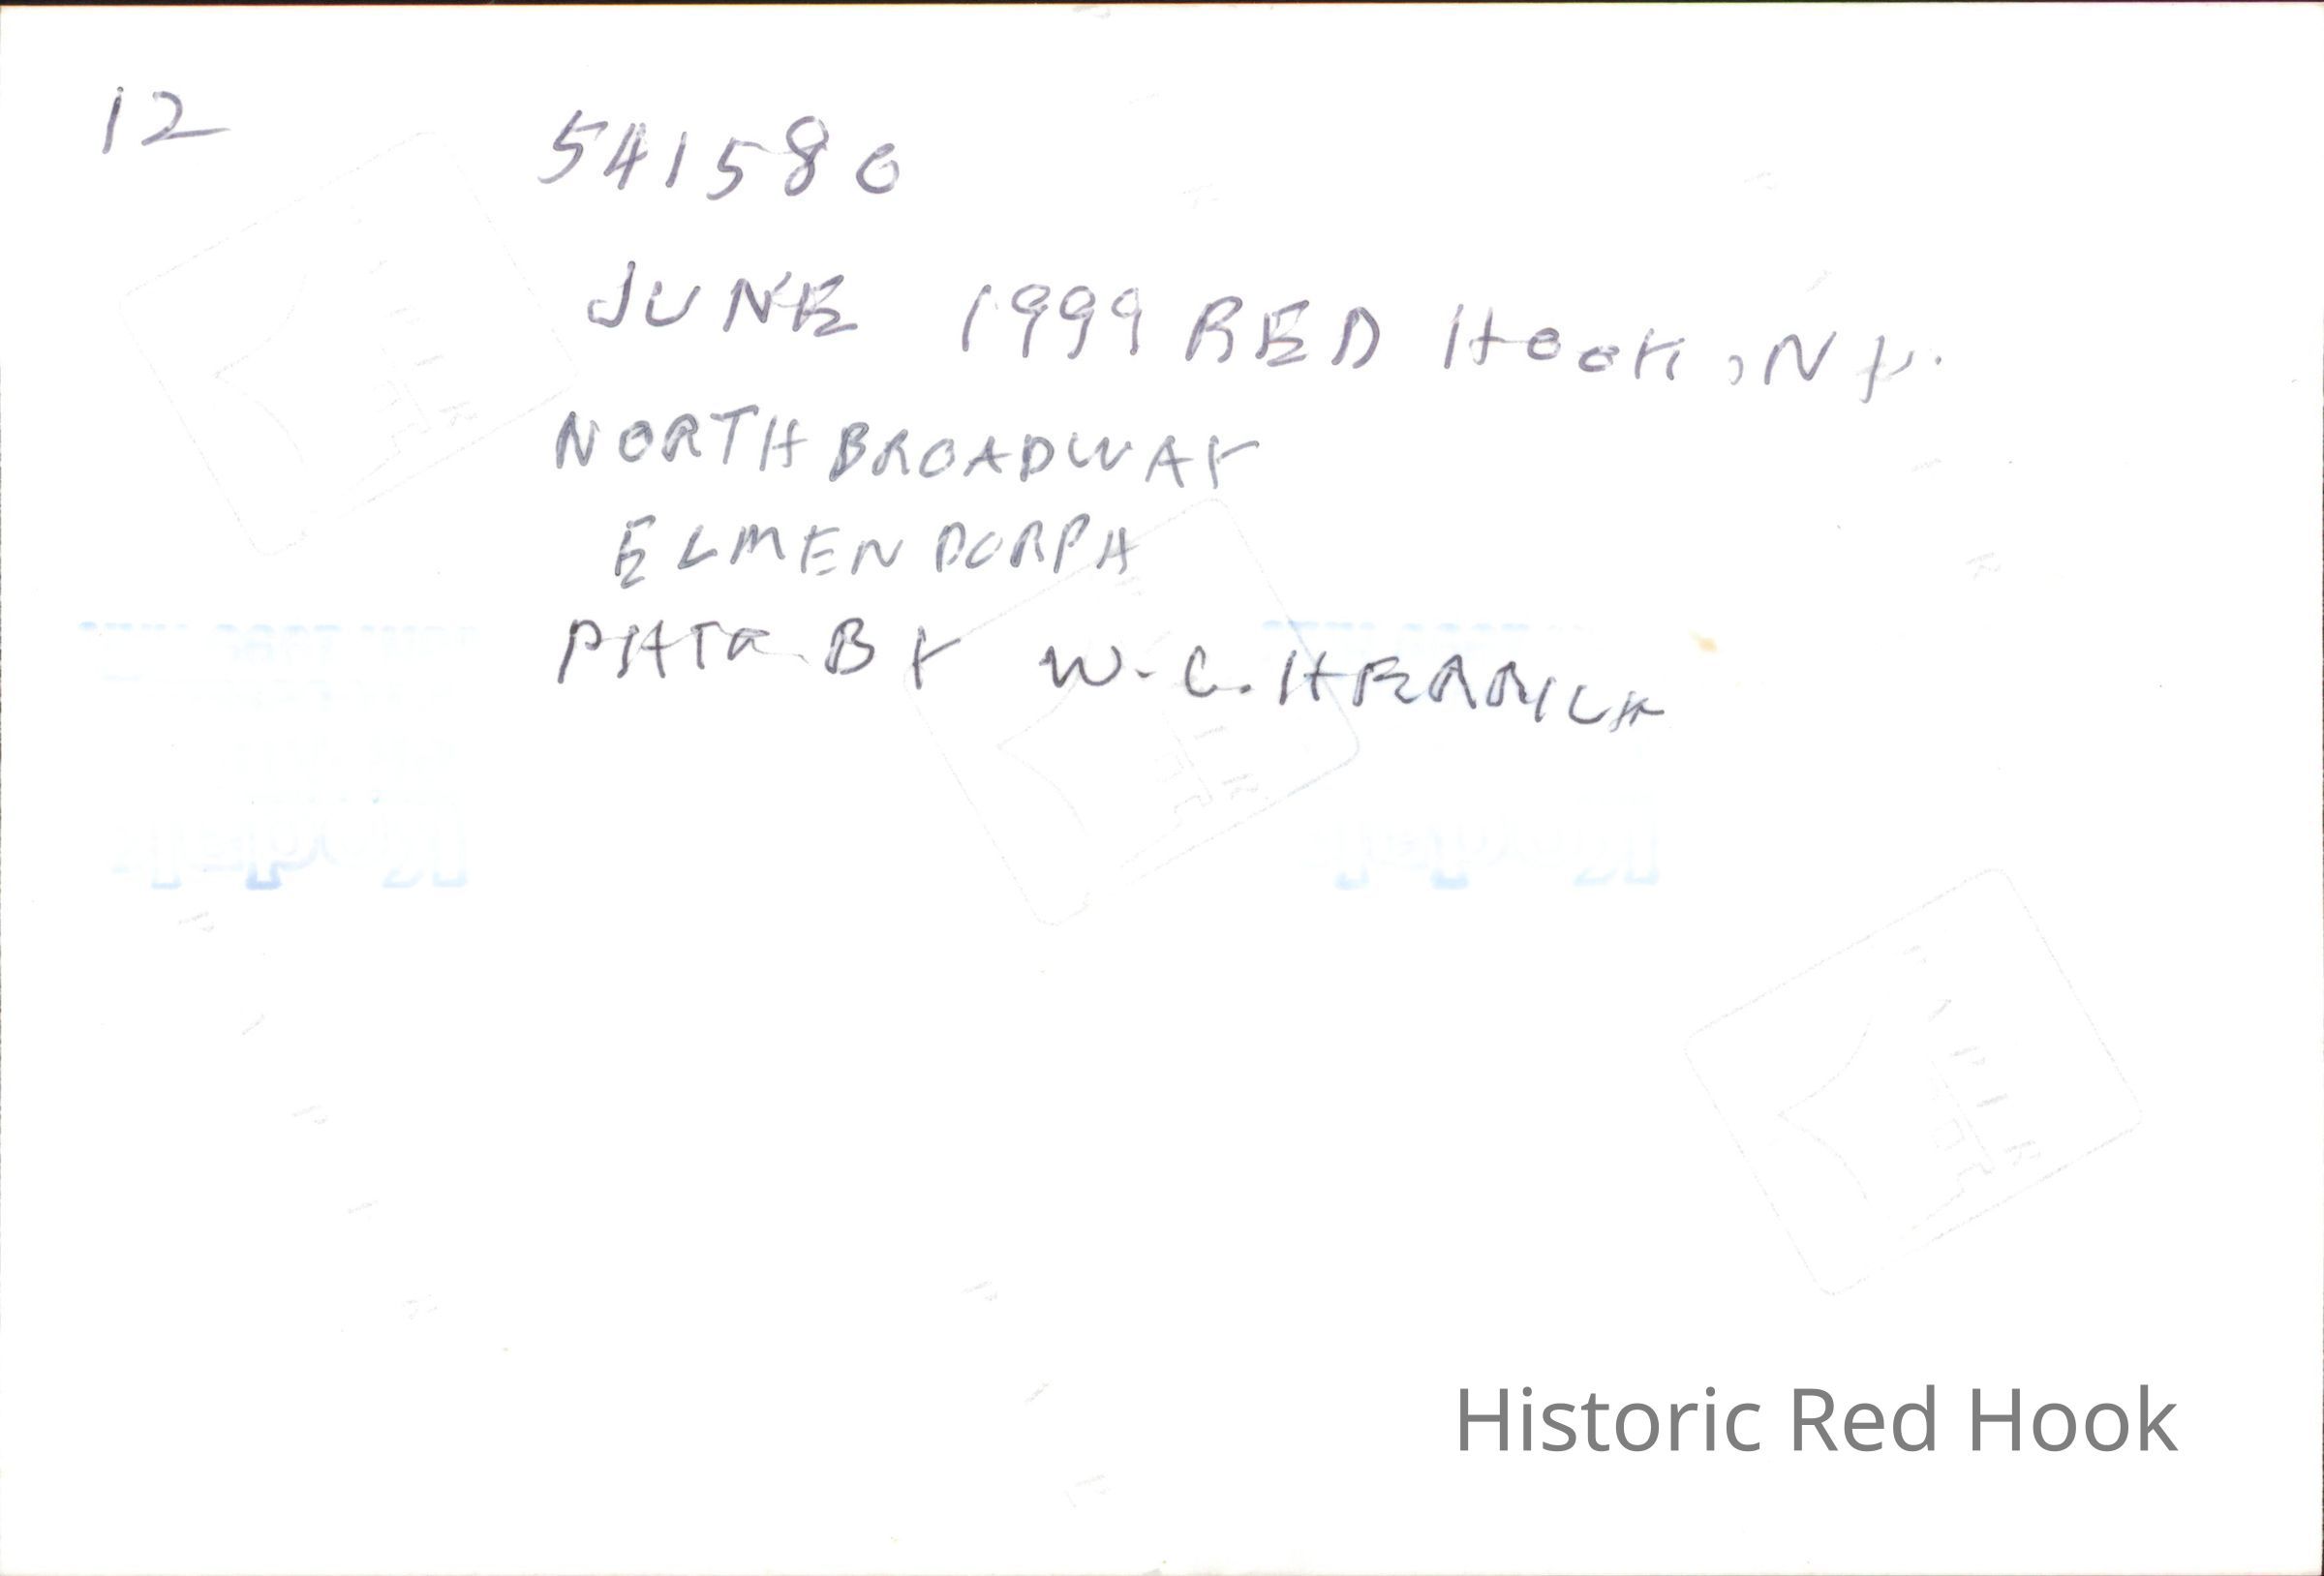 12
541580
JUNE 1999 RED HOOK, NY.
NORTH BROADWAY
ELMENDORPH
PHTO BY W. C. HERRICK
Kodak Kodak
Historic Red Hook